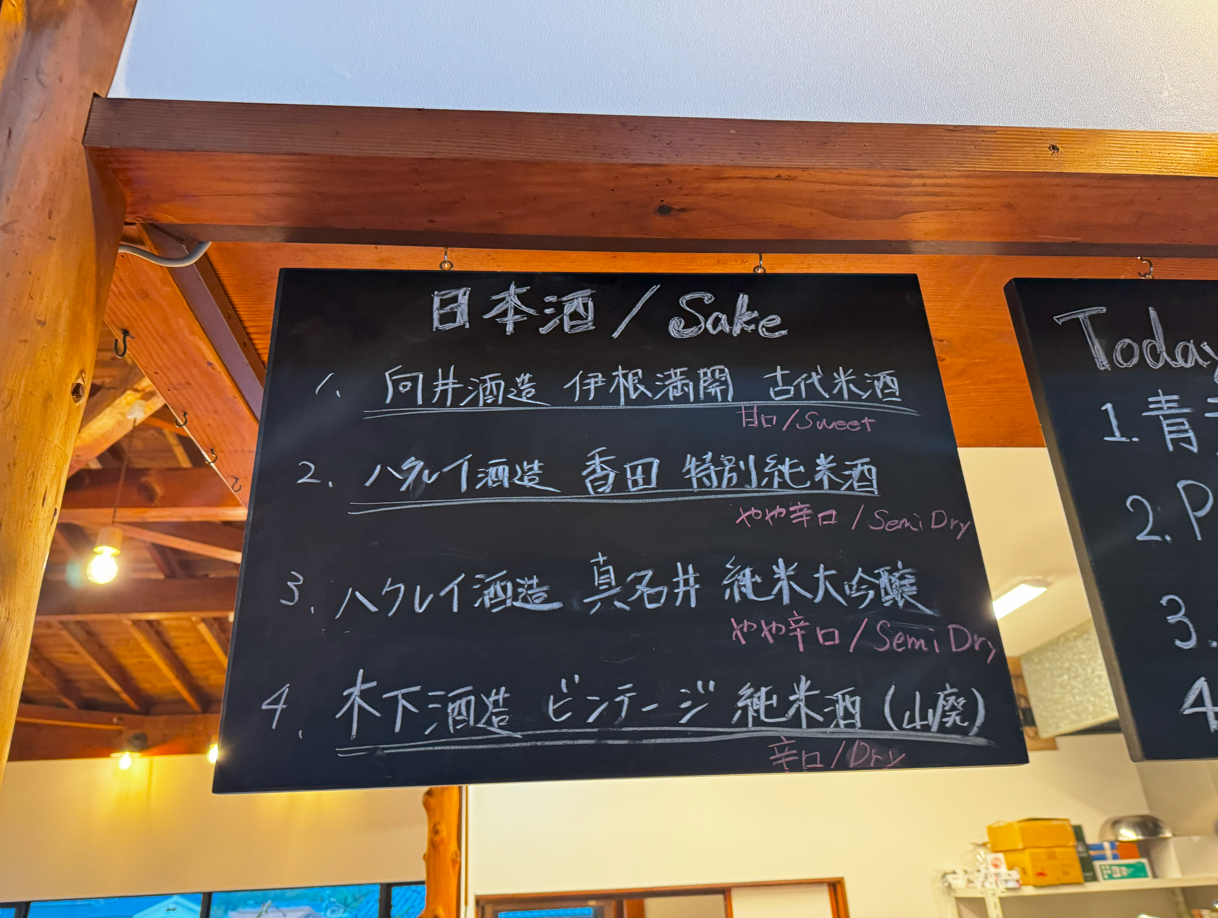 日本酒/Sake
1. 向井酒造 伊根満開 古代米酒
甘口/Sweet
2. ハクレイ酒造 香田 特別純米酒
やや辛口/Semi Dry
3. ハクレイ酒造 真名井 純米大吟醸
やや辛口/Semi Dry
4. 木下酒造 ビンテージ 純米酒(山廃)
辛口/Dry
Today
1. 青
2. P
3.
4